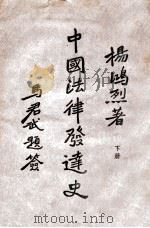 楊鴻烈著
下册
中國法律發達史
馬君武題簽
www.gotohui.com